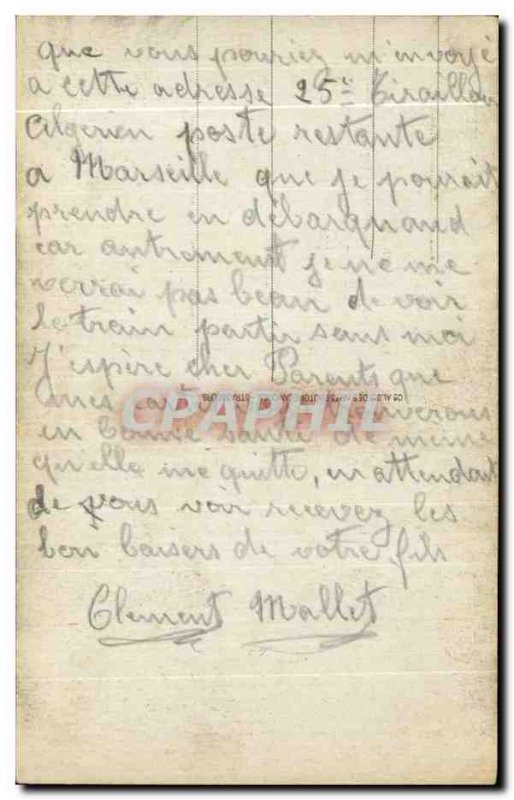 que vous pouriez m'envoyé
a cette adresse 25e Tirailleur
Algerien poste restante
a Marseille que je pourait
prendre en débarquand
car autrement je ne me
verrai pas beau de voir
le train partir sans moi
J'espère cher Parents que
mes cartes vous trouverons
en bonne santé de meme
qu'elle me quitte, en attendant
de vous voir recevez les
bon baisers de votre fils
Clement Mallet
CPAPHIL
STRASBOURG